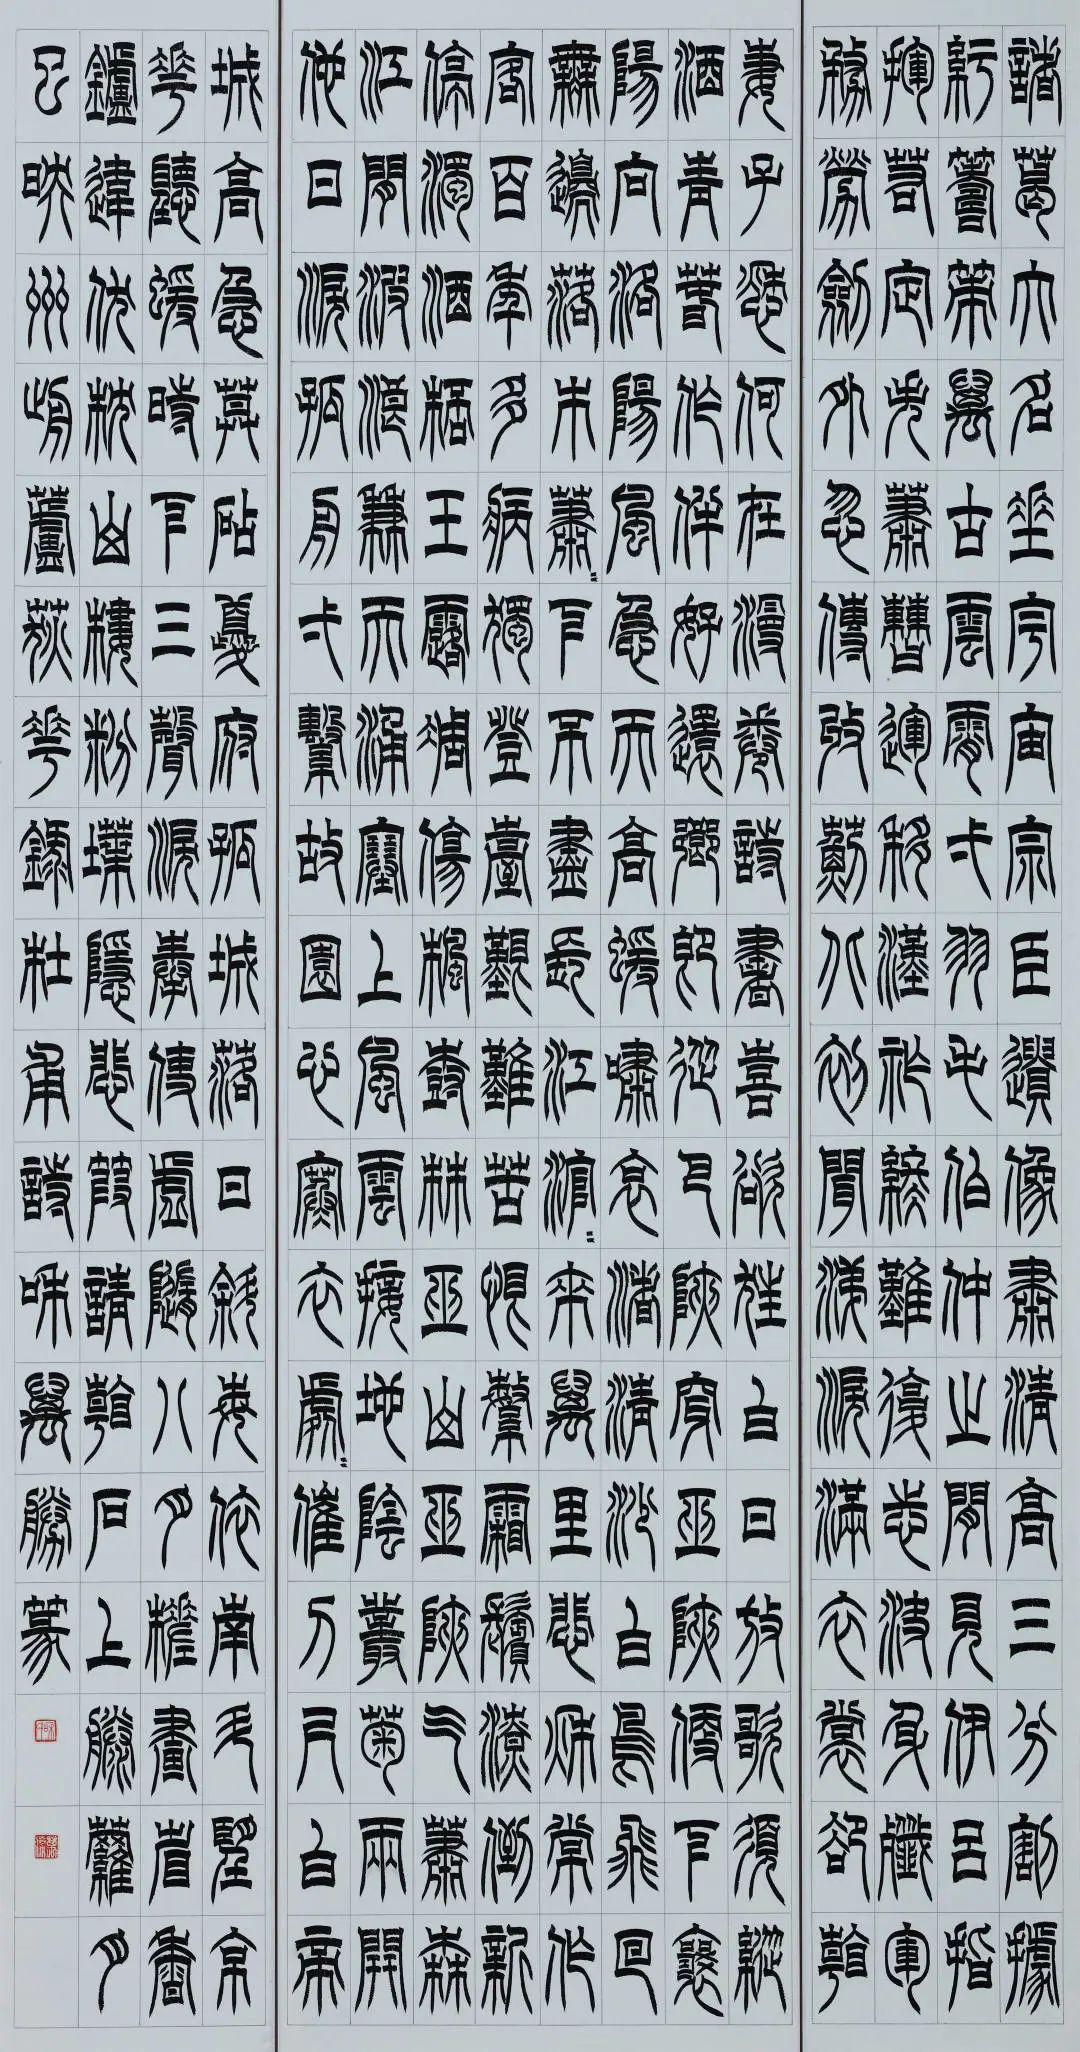 諸葛大名垂宇宙宗臣遺像肅清高三分割據
紆籌策萬古雲霄一羽毛伯仲之間見伊呂指
揮若定失蕭曹運移漢祚終難復志決身殲軍
務勞劍外忽傳收薊北初聞涕淚滿衣裳卻看
妻子愁何在漫卷詩書喜欲狂白日放歌須縱
酒青春作伴好還鄉即從巴峽穿巫峽便下襄
陽向洛陽風急天高猨嘯哀渚清沙白鳥飛回
無邊落木蕭々下不盡長江滾々來萬里悲秋常作
客百年多病獨登臺艱難苦恨繁霜鬢潦倒新
停濁酒杯玉露凋傷楓樹林巫山巫峽氣蕭森
江間波浪兼天湧塞上風雲接地陰叢菊兩開
他日淚孤舟一繫故園心寒衣處々催刀尺白帝
城高急暮砧夔府孤城落日斜每依南斗望京
華聽猨時下三聲淚奉使虛隨八月槎畫省香
爐違伏枕山樓粉堞隱悲笳請看石上藤蘿月
已映洲前蘆荻花錄杜甫詩萬勝篆